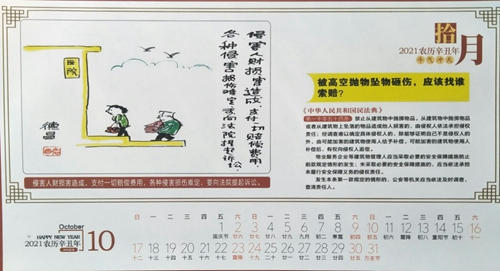 侵害人财损害造成,支付一切赔偿费用,
各种侵害损伤确定,要向法院提起诉讼。
医院
德昌
侵害人财损害造成,支付一切赔偿费用,各种侵害损伤确定,要向法院提起诉讼。
拾月
2021农历辛丑年
牛气冲天
被高空抛物坠物砸伤,应该找谁索赔?
《中华人民共和国民法典》
第一千二百五十四条 禁止从建筑物中抛掷物品。从建筑物中抛掷物品
或者从建筑物上坠落的物品造成他人损害的,由侵权人依法承担侵权
责任;经调查难以确定具体侵权人的,除能够证明自己不是侵权人的
外,由可能加害的建筑物使用人给予补偿。可能加害的建筑物使用人
补偿后,有权向侵权人追偿。
物业服务企业等建筑物管理人应当采取必要的安全保障措施防止
前款规定情形的发生;未采取必要的安全保障措施的,应当依法承担
未履行安全保障义务的侵权责任。
发生本条第一款规定的情形的,公安等机关应当依法及时调查,
查清责任人。
October
HAPPY NEW YEAR
2021农历辛丑年
10
日 一 二 三 四 五 六 日 一 二 三 四 五 六 日 一 二 三 四 五 六
1 2 3 4 5 6 7 8 9 10 11 12 13 14 15 16
17 18 19 20 21 22 23 24 25 26 27 28 29 30 31